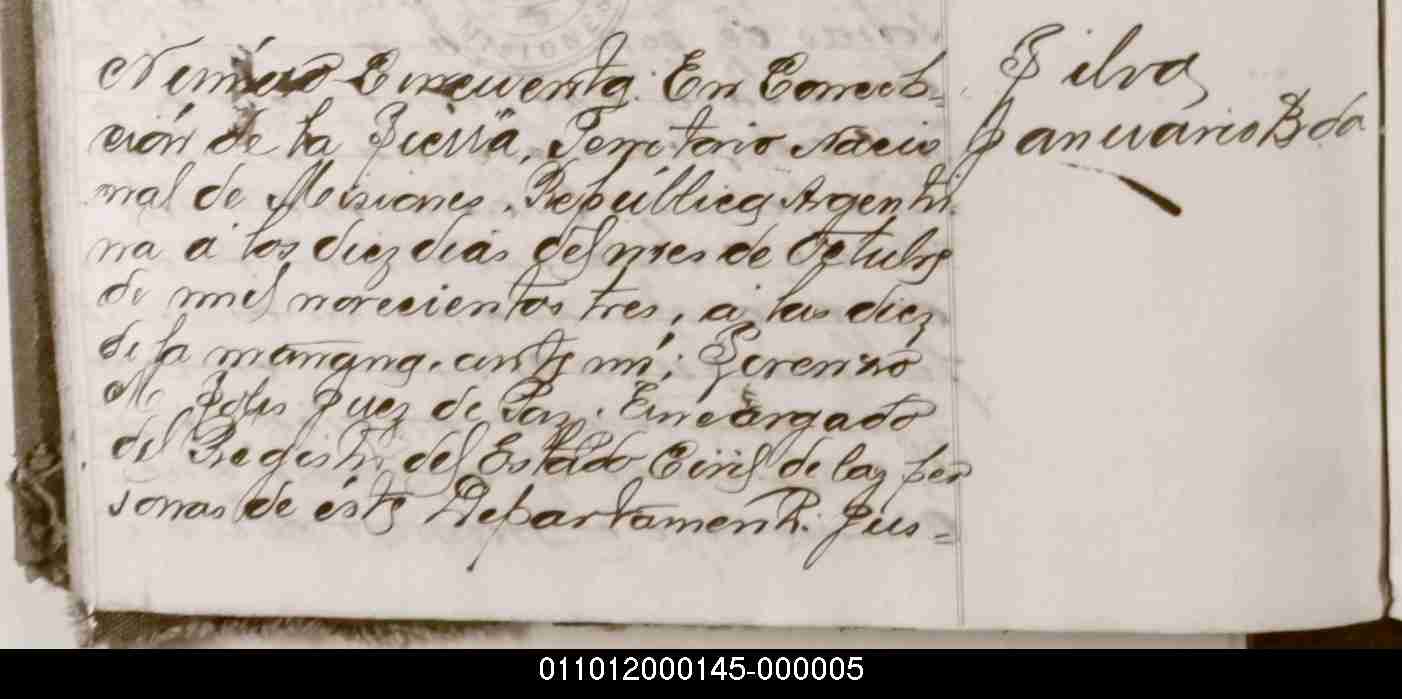 Número Cincuenta. En Concep-
ción de la Sierra, Territorio Nacio
nal de Misiones, República Argenti
na á los diez dias del mes de Octubre
de mil novecientos tres, á las diez
de la mañana, ante mí; Lorenzo
M. Juez de Paz, Encargado
del Registro del Estado Civil de las per
sonas de éste Departamento.
Silva
Januario Bda
011012000145-000005